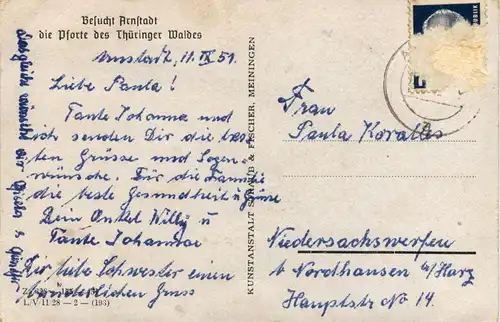 Besucht Arnstadt
die Pforte des Thüringer Waldes
Arnstadt, 11. IX 51.
Liebe Paula!
Tante Johanna und
ich senden Dir die bes-
ten Grüsse und Segen-
wünsche. Für die Familie
die beste Gesundheit u Grüsse
Dein Onkel Willy u
Tante Johanna
Dir liebe Schwester einen
brüderlichen Gruss
Desgleichen wünscht dir Gisela & Günther
L/V 11 28 — 2 — (193)
KUNSTANSTALT STRAUB & FISCHER, MEININGEN
Frau
Paula Koralles
Niedersachswerfen
b Nordhausen a/Harz
Hauptstr No 14.